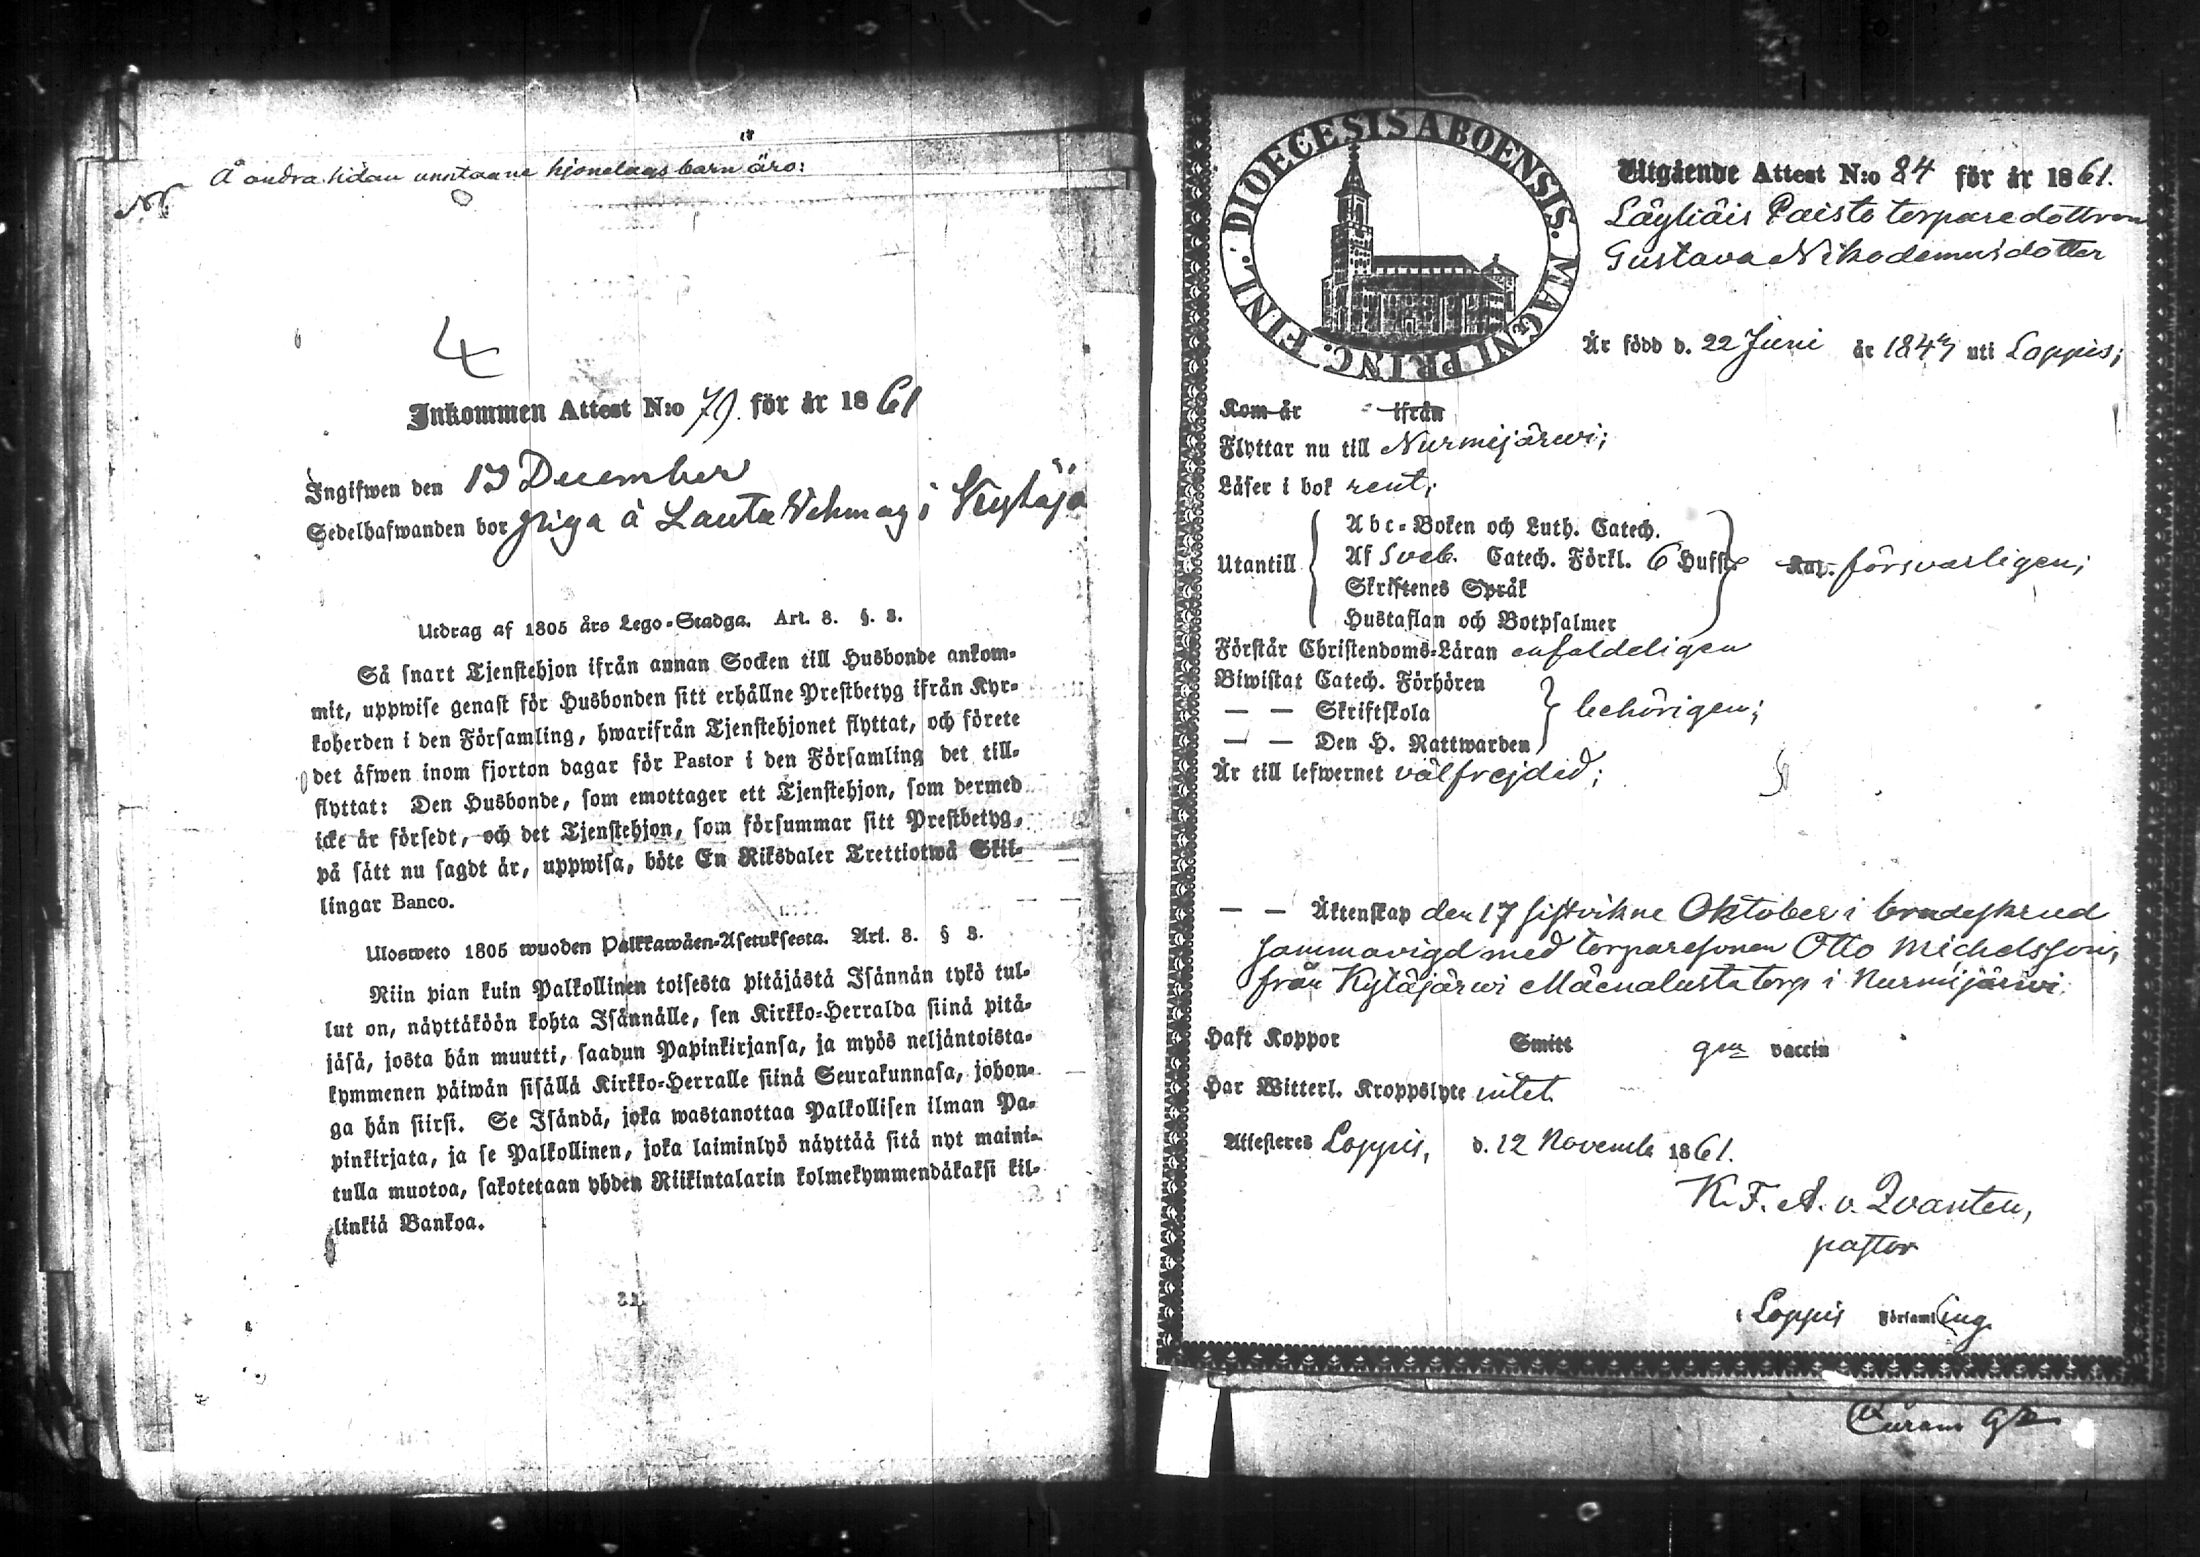 Å andra sidan hjonelags barn äro:
4
Inkommen Attest N:o 79. för år 1861
Ingifwen den 13 December
Sedelhafwanden bor piga å Lauta i
Utdrag af 1805 års Lego-Stadga. Art. 8. §. 8.
Så snart Tjenstehjon ifrån annan Socken till Husbonde ankom-
mit, uppwise genast för Husbonden sitt erhållne Prestbetyg ifrån Kyr-
koherden i den Församling, hwarifrån Tjenstehjonet flyttat, och förete
det äfwen inom fjorton dagar för Pastor i den Församling det till-
flyttat: Den Husbonde, som emottager ett Tjenstehjon, som dermed
icke är försedt, och det Tjenstehjon, som försummar sitt Prestbetyg,
på sätt nu sagdt är, uppwisa, böte En Riksdaler Trettiotwå Skil-
lingar Banco.
Ulosweto 1805 wuoden Palkkawäen-Asetuksesta. Art. 8. § 8.
Niin pian kuin Palkollinen toisesta pitäjästä Isännän tykö tul-
lut on, näyttäköön kohta Isännälle, sen Kirkko-Herralda siinä pitä-
jäsä, josta hän muutti, saadun Papinkirjansa, ja myös neljäntoista-
kymmenen päiwän sisällä Kirkko-Herralle siinä Seurakunnasa, johon-
ga hän siirsi. Se Isändä, joka wastanottaa Palkollisen ilman Pa-
pinkirjata, ja se Palkollinen, joka laiminlyö näyttää sitä nyt maini-
tulla muotoa, sakotetaan yhden Riikintalarin kolmekymmendäkaksi kil-
linkiä Bankoa.
DIOECESIS ABOENSIS. MAGNI PRINC. FINL.
Utgående Attest N:o 84 för år 1861.
Läyliäis Paisto torparedottren
Gustava Nikodemusdotter
Är född d. 22 Juni år 184 uti Loppis;
Kom år ifrån
Flyttar nu till Nurmijärwi;
Läser i bok rent;
Utantill
Abc-Boken och Luth. Catech.
Af Sveb. Catech. Förkl. 6 Hufst. Kap. försvarligen;
Skriftenes Språk
Hustaflan och Botpsalmer
Förstår Christendoms-Läran enfaldeligen
Biwistat Catech. Förhören
— — Skriftskola behörigen;
— — Den H. Nattwarden
Är till lefwernet välfrejdad;
— — Äktenskap den 17 sistvikne Oktober i brudeskrud
sammanvigd med torparesonen Otto Michelsson,
från Kytäjärwi torp i Nurmijärwi.
Haft Koppor Smitt gm vaccin
Har Witterl. Kroppslyte intet.
Attesteres Loppis, d. 12 Novemb 1861.
K. F. A. v. Qvanten,
pastor
i Loppis Församling.